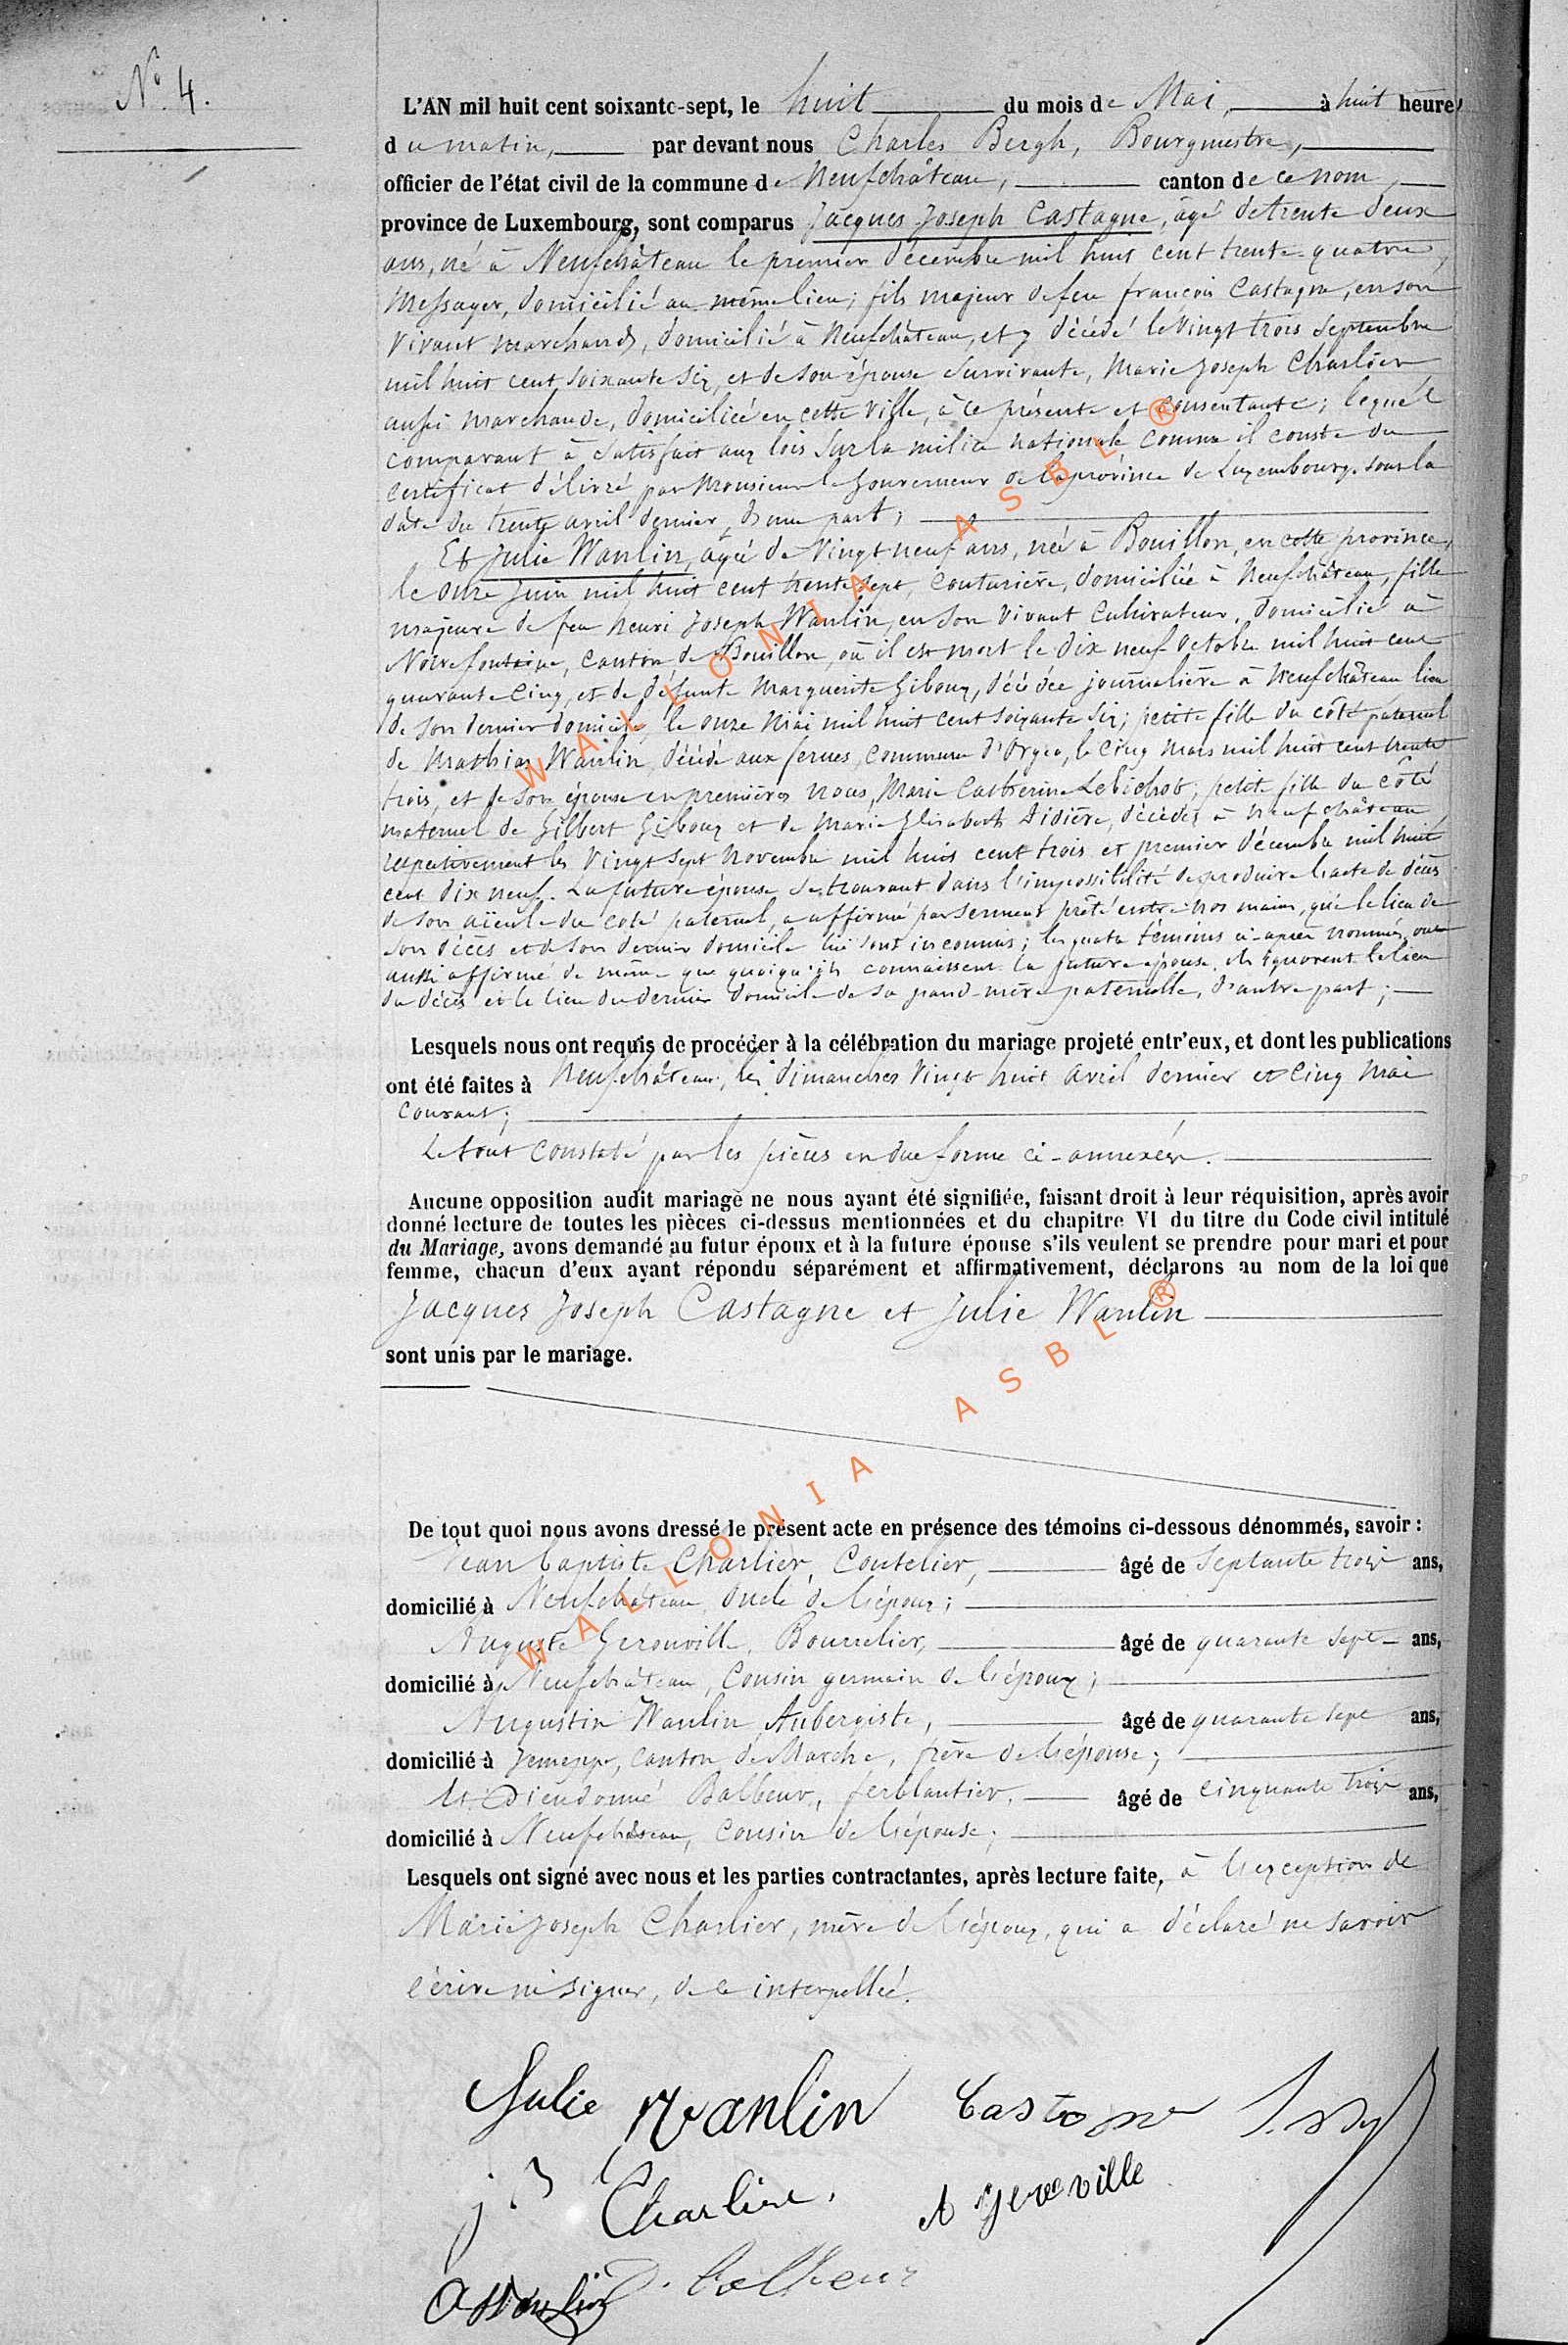 N° 4.
L'AN mil huit cent soixante-sept, le huit du mois de Mai, à huit heures
du matin, par devant nous Charles Bergh, Bourgmestre,
officier de l'état civil de la commune de Neufchâteau, canton de ce nom,
province de Luxembourg, sont comparus Jacques Joseph Castagne, âgé de trente deux
ans, né à Neufchâteau le premier décembre mil huit cent trente-quatre,
Messager, domicilié au même lieu; fils majeur de feu françois Castagne, en son
vivant marchand, domicilié à Neufchâteau, et y décédé le vingt trois Septembre
mil huit cent soixante six, et de son épouse survivante, Marie Joseph Charlier
aussi marchande, domiciliée en cette ville, à ce présente et consentante; lequel
comparant à satisfait aux lois sur la milice nationale comme il conste du
certificat délivré par Monsieur le Gouverneur de la province de Luxembourg, sous la
date du trente avril dernier, d'une part;
Et Julie Wanlin, âgée de vingt neuf ans, née à Bouillon, en cette province,
le onze Juin mil huit cent trente sept, couturière, domiciliée à Neufchâteau, fille
majeure de feu henri Joseph Wanlin, en son vivant Cultivateur, domicilié à
Noirefontaine, canton de Bouillon, où il est mort le dix neuf Octobre mil huit cent
quarante cinq, et de défunte Marguerite Giboux, décédée journalière à Neufchâteau lieu
de son dernier domicile, le onze Mai mil huit cent soixante six; petite fille du côté paternel
de Mathias Wanlin, décédé aux fosses, commune d'Orgeo, le cinq mars mil huit cent trente
trois, et de son épouse en premières noces, Marie Catherine ; petite fille du côté
maternel de Gilbert Giboux et de Marie Elisabeth Didière, décédés à Neufchâteau
respectivement les vingt sept Novembre mil huit cent trois et premier décembre mil huit
cent dix neuf. La future épouse se trouvant dans l'impossibilité de produire l'acte de décès
de son aïeule du coté paternel, a affirmé par serment prêté entre nos mains, que le lieu de
son décès et de son dernier domicile lui sont inconnus; les quatre témoins ci-après nommés, ont
aussi affirmé de même que quoiqu'ils connaissent la future épouse, ils ignorent le lieu
du décès et le lieu du dernier domicile de sa grand-mère paternelle, d'autre part;
Lesquels nous ont requis de procéder à la célébration du mariage projeté entr'eux, et dont les publications
ont été faites à Neufchâteau, les dimanches vingt huit avril dernier et cinq Mai
courant;
Le tout constaté par les pièces en due forme ci-annexées.
Aucune opposition audit mariage ne nous ayant été signifiée, faisant droit à leur réquisition, après avoir
donné lecture de toutes les pièces ci-dessus mentionnées et du chapitre VI du titre du Code civil intitulé
du Mariage, avons demandé au futur époux et à la future épouse s'ils veulent se prendre pour mari et pour
femme, chacun d'eux ayant répondu séparément et affirmativement, déclarons au nom de la loi que
Jacques Joseph Castagne et Julie Wanlin
sont unis par le mariage.
De tout quoi nous avons dressé le présent acte en présence des témoins ci-dessous dénommés, savoir :
Jean baptiste Charlier, Coutelier, âgé de septante trois ans,
domicilié à Neufchâteau, oncle de l'époux;
Auguste Gerouville, Bourrelier, âgé de quarante sept ans,
domicilié à Neufchâteau, Cousin germain de l'époux;
Augustin Wanlin, Aubergiste, âgé de quarante sept ans,
domicilié à Jemeppe, canton de Marche, frère de l'épouse;
Et Dieudonné Balbeur, ferblantier, âgé de cinquante trois ans,
domicilié à Neufchâteau, cousin de l'épouse;
Lesquels ont signé avec nous et les parties contractantes, après lecture faite, à l'exception de
Marie Joseph Charlier, mère de l'époux, qui a déclaré ne savoir
écrire ni signer, de ce interpellée.
Julie Wanlin Castagne
j B Charlier. A Gerouville
A Wanlin D. Balbeur
WALLONIA ASBL ®
WALLONIA ASBL ®